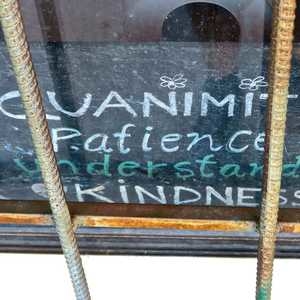 QUANIMIT
Patience
Understand
& KINDNESS